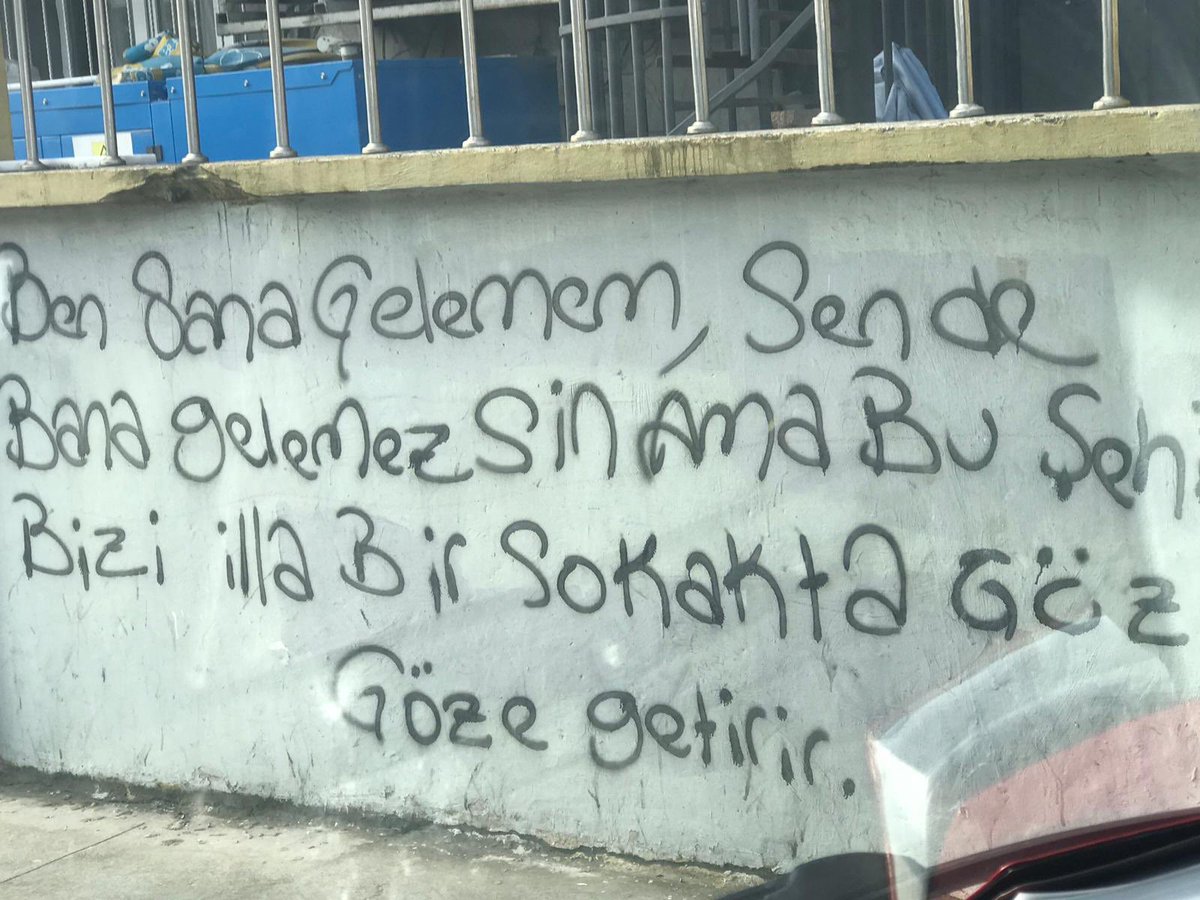 Ben Sana Gelemem, Sen de
Bana gelemez Sin Ama Bu Şehi
Bizi illa Bir Sokakta Göz
Göze getirir.